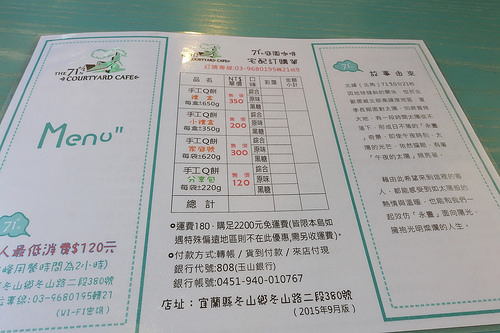 THE 71's
COURTYARD CAFE
Menu"
人最低消費$120元
峰用餐時間為2小時)
冬山鄉冬山路二段380號
專線:03-9680195轉21
(WI-FI密碼
COURTYARD CAFE
宅配訂購單
訂購專線:03-9680195轉21或9
品名 NT$ 單價 口味 數量 金額小計
手工Q餅
禮盒
每盒±650g
售價
350
綜合
原味
黑糖
手工Q餅
小禮盒
每盒±350g
售價
200
綜合
原味
黑糖
手工Q餅
家庭號
每袋±620g
售價
300
綜合
原味
黑糖
手工Q餅
分享包
每袋±220g
售價
120
綜合
原味
黑糖
總計
運費180,購足2200元免運費(皆限本島如
遇特殊偏遠地區則不在此優惠,需另收運費)。
付款方式:轉帳 / 貨到付款 / 來店付現
銀行代號:808(玉山銀行)
銀行帳號:0451-940-010767
店址:宜蘭縣冬山鄉冬山路二段380號
(2015年9月版)
71's
故事由來
「午夜的太陽」
熱情與溫暖,也能和我們一
起效仿「永晝」面向陽光,
擁抱光明燦爛的人生。